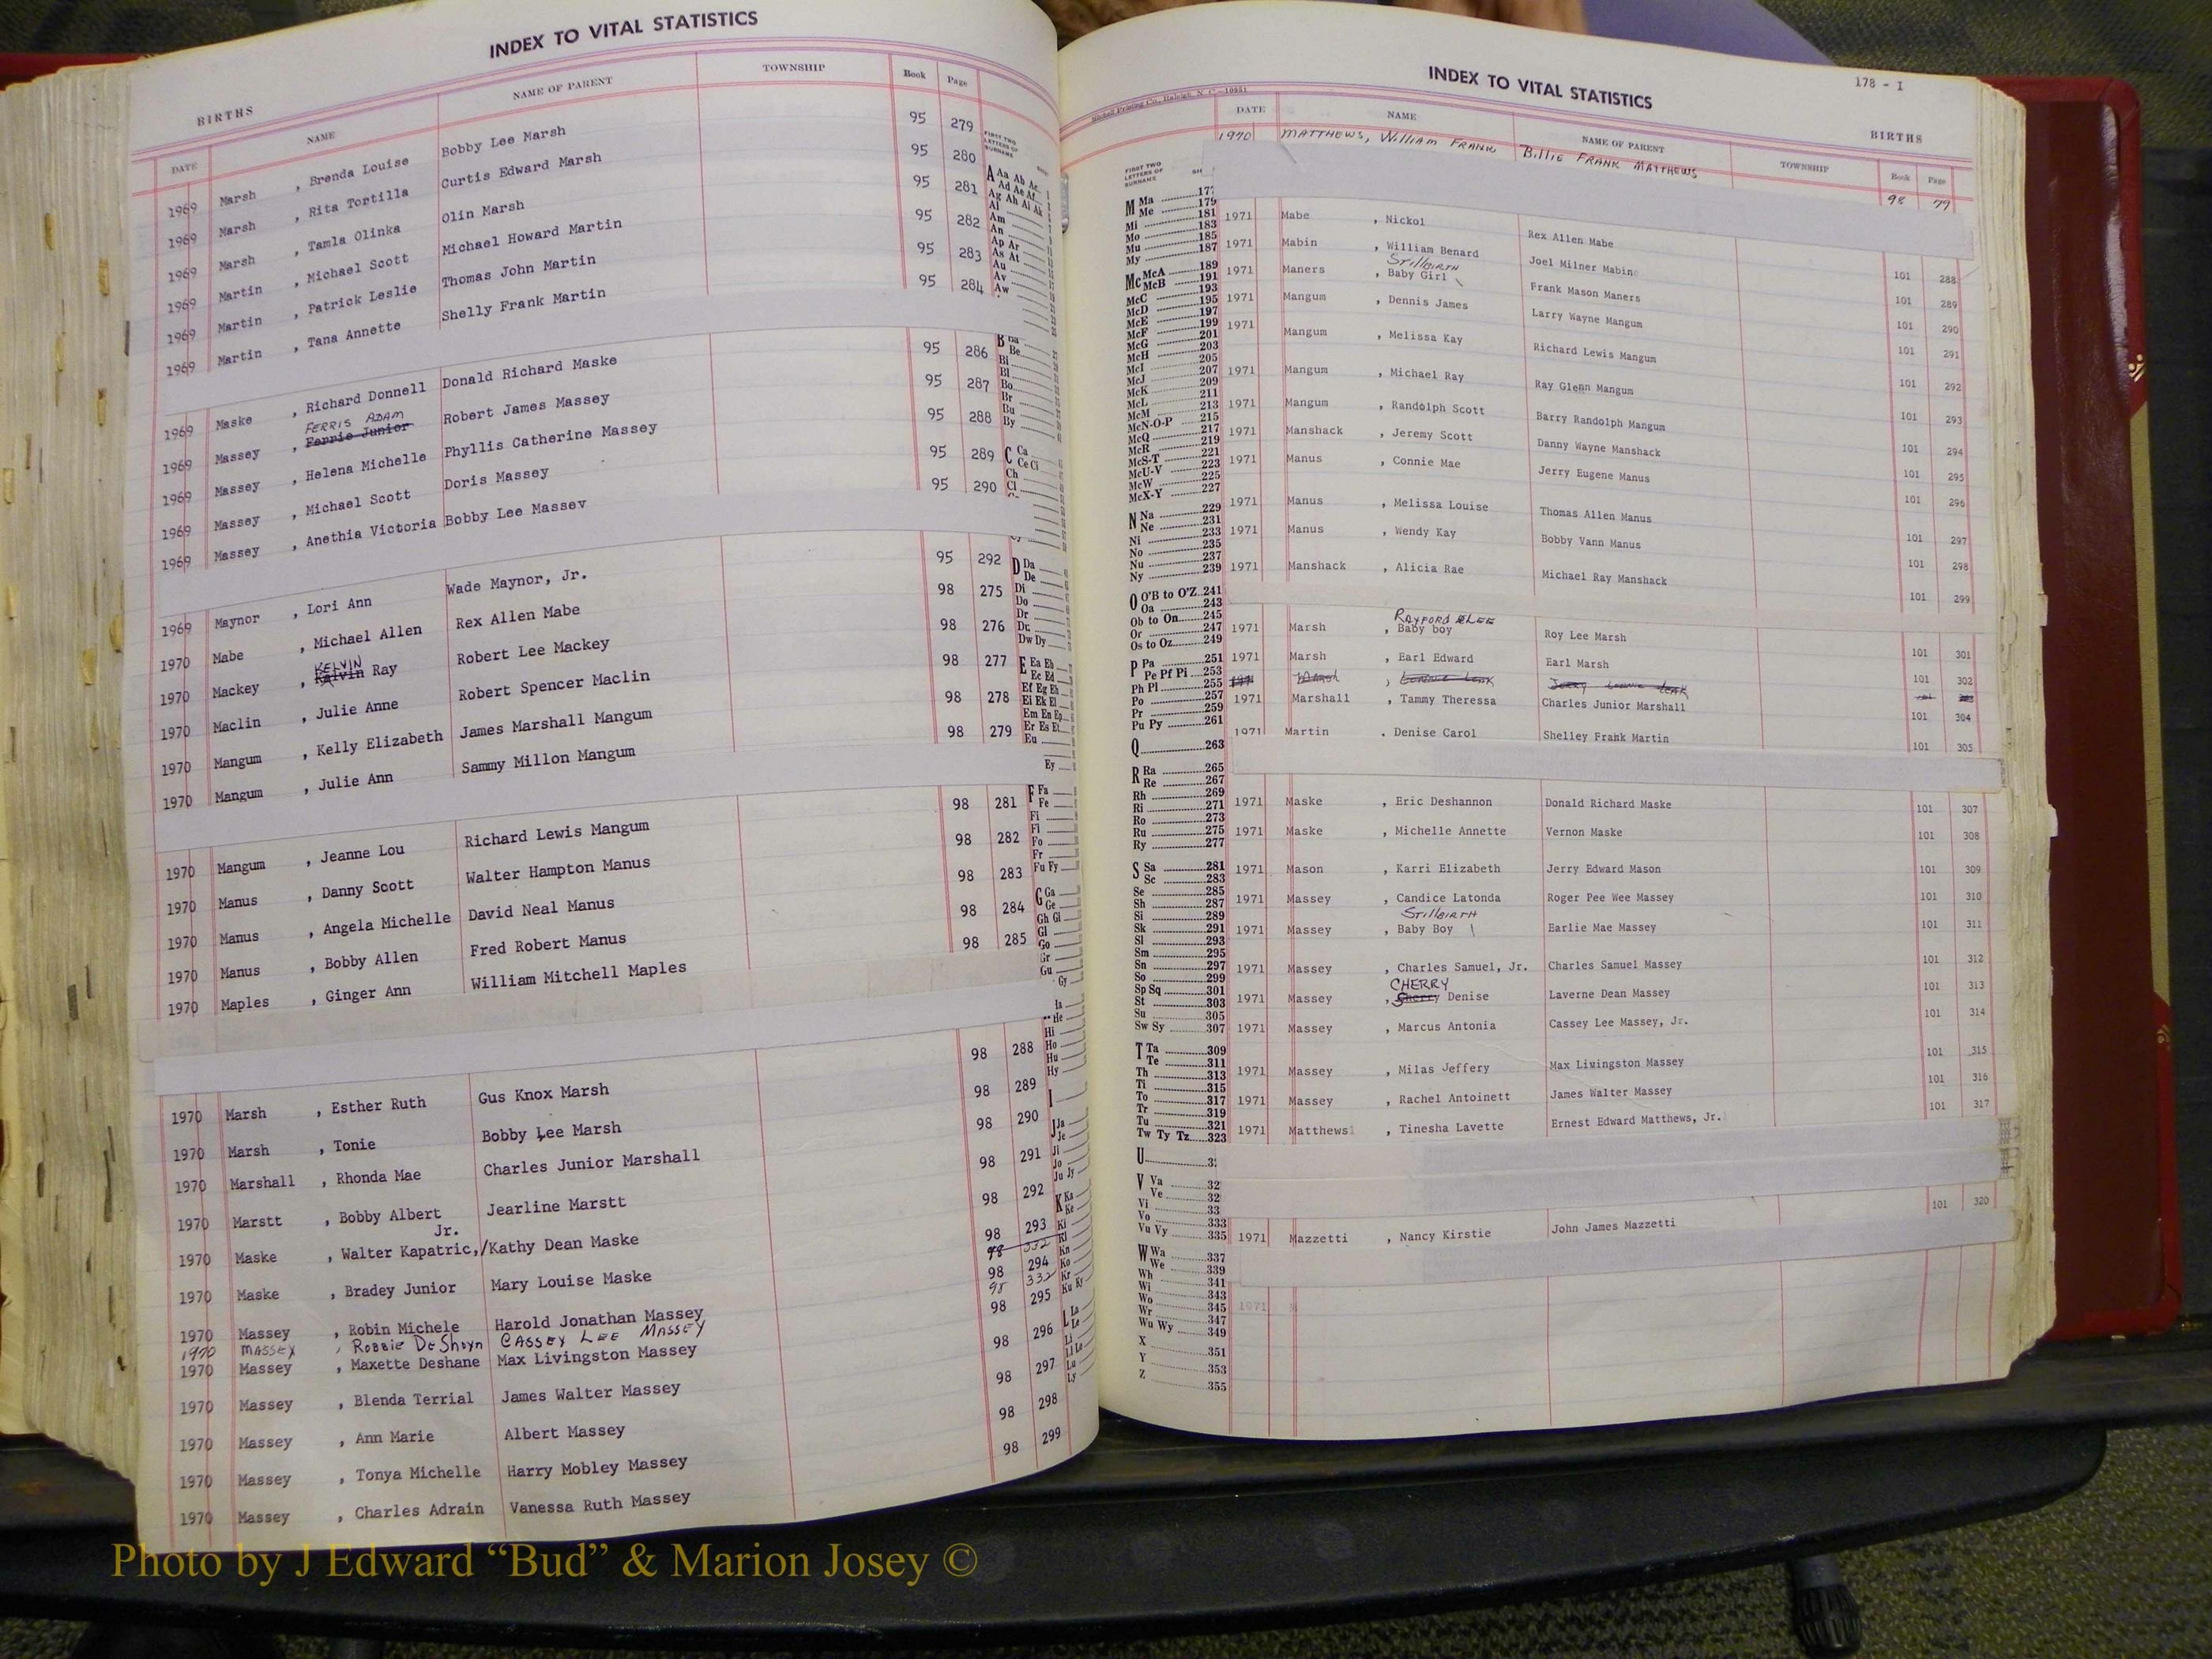 INDEX TO VITAL STATISTICS
BIRTHS
DATE NAME NAME OF PARENT TOWNSHIP Book Page
1969 Marsh , Brenda Louise Bobby Lee Marsh 95 279
1969 Marsh , Rita Tortilla Curtis Edward Marsh 95 280
1969 Marsh , Tamla Olinka Olin Marsh 95 281
1969 Martin , Michael Scott Michael Howard Martin 95 282
1969 Martin , Patrick Leslie Thomas John Martin 95 283
1969 Martin , Tana Annette Shelly Frank Martin 95 284
1969 Maske , Richard Donnell Donald Richard Maske 95 286
FERRIS ADAM
1969 Massey , Ferris Junior Robert James Massey 95 287
1969 Massey , Helena Michelle Phyllis Catherine Massey 95 288
1969 Massey , Michael Scott Doris Massey 95 289
1969 Massey , Anethia Victoria Bobby Lee Massey 95 290
1969 Maynor , Lori Ann Wade Maynor, Jr. 95 292
1970 Mabe , Michael Allen Rex Allen Mabe 98 275
KELVIN
1970 Mackey , Kalvin Ray Robert Lee Mackey 98 276
1970 Maclin , Julie Anne Robert Spencer Maclin 98 277
1970 Mangum , Kelly Elizabeth James Marshall Mangum 98 278
1970 Mangum , Julie Ann Sammy Millon Mangum 98 279
1970 Mangum , Jeanne Lou Richard Lewis Mangum 98 281
1970 Manus , Danny Scott Walter Hampton Manus 98 282
1970 Manus , Angela Michelle David Neal Manus 98 283
1970 Manus , Bobby Allen Fred Robert Manus 98 284
1970 Maples , Ginger Ann William Mitchell Maples 98 285
1970 Marsh , Esther Ruth Gus Knox Marsh 98 288
1970 Marsh , Tonie Bobby Lee Marsh 98 289
1970 Marshall , Rhonda Mae Charles Junior Marshall 98 290
1970 Marstt , Bobby Albert Jearline Marstt 98 291
Jr.
1970 Maske , Walter Kapatric,/Kathy Dean Maske 98 292
1970 Maske , Bradey Junior Mary Louise Maske 98 293
98 332
1970 Massey , Robin Michele Harold Jonathan Massey 98 294
1970 MASSEY , Robbie DeShoyn CASSEY LEE MASSEY 98 332
1970 Massey , Maxette Deshane Max Livingston Massey 98 295
1970 Massey , Blenda Terrial James Walter Massey 98 296
1970 Massey , Ann Marie Albert Massey 98 297
1970 Massey , Tonya Michelle Harry Mobley Massey 98 298
1970 Massey , Charles Adrain Vanessa Ruth Massey 98 299
FIRST TWO
LETTERS OF
SURNAME
A Aa Ab Ac
Ad Ae Af
Ag Ah Ai Ak
Al
Am
An
Ap Ar
As At
Au
Av
Aw
B Ba
Be
Bi
Bl
Bo
Br
Bu
By
C Ca
Ce Ci
Ch
Cl
D Da
De
Di
Do
Dr
Du
Dw Dy
E Ea Eb
Ec Ed
Ef Eg Eh
Ei Ek El
Em En Ep
Er Es Et
Eu
Ey
F Fa
Fe
Fi
Fl
Fo
Fr
Fu Fy
G Ga
Ge
Gh Gi
Gl
Go
Gr
Gu
Gy
He
Hi
Ho
Hu
Hy
I
J Ja
Je
Ji
Jo
Ju Jy
K Ka
Ke
Ki
Kl
Kn
Ko
Kr
Ku Ky
L La
Le
Li
Ll Lo
Lu
Ly
INDEX TO VITAL STATISTICS
178 - I
Mitchell Printing Co., Raleigh, N. C.—10951
BIRTHS
DATE NAME NAME OF PARENT TOWNSHIP Book Page
1970 MATTHEWS, William FRANK Billie FRANK MATTHEWS 98 79
1971 Mabe , Nickol Rex Allen Mabe 101 288
1971 Mabin , William Benard Joel Milner Mabin 101 289
Stillbirth
1971 Maners , Baby Girl Frank Mason Maners 101 290
1971 Mangum , Dennis James Larry Wayne Mangum 101 291
1971 Mangum , Melissa Kay Richard Lewis Mangum 101 292
1971 Mangum , Michael Ray Ray Glenn Mangum 101 293
1971 Mangum , Randolph Scott Barry Randolph Mangum 101 294
1971 Manshack , Jeremy Scott Danny Wayne Manshack 101 295
1971 Manus , Connie Mae Jerry Eugene Manus 101 296
1971 Manus , Melissa Louise Thomas Allen Manus 101 297
1971 Manus , Wendy Kay Bobby Vann Manus 101 298
1971 Manshack , Alicia Rae Michael Ray Manshack 101 299
RAYFORD LEE
1971 Marsh , Baby boy Roy Lee Marsh 101 301
1971 Marsh , Earl Edward Earl Marsh 101 302
1971 Marshall , Tammy Theressa Charles Junior Marshall 101 304
1971 Martin , Denise Carol Shelley Frank Martin 101 305
1971 Maske , Eric Deshannon Donald Richard Maske 101 307
1971 Maske , Michelle Annette Vernon Maske 101 308
1971 Mason , Karri Elizabeth Jerry Edward Mason 101 309
1971 Massey , Candice Latonda Roger Pee Wee Massey 101 310
Stillbirth
1971 Massey , Baby Boy Earlie Mae Massey 101 311
1971 Massey , Charles Samuel, Jr. Charles Samuel Massey 101 312
CHERRY
1971 Massey , Sherry Denise Laverne Dean Massey 101 313
1971 Massey , Marcus Antonia Cassey Lee Massey, Jr. 101 314
1971 Massey , Milas Jeffery Max Livingston Massey 101 315
1971 Massey , Rachel Antoinett James Walter Massey 101 316
1971 Matthews , Tinesha Lavette Ernest Edward Matthews, Jr. 101 317
1971 Mazzetti , Nancy Kirstie John James Mazzetti 101 320
1971
FIRST TWO
LETTERS OF
SURNAME
M Ma 177
Me 179
Mi 181
Mo 183
Mu 185
My 187
Mc McA 189
McB 191
McC 193
McD 195
McE 197
McF 199
McG 201
McH 203
McI 205
McJ 207
McK 209
McL 211
McM 213
McN-O-P 215
McQ 217
McR 219
McS-T 221
McU-V 223
McW 225
McX-Y 227
N Na 229
Ne 231
Ni 233
No 235
Nu 237
Ny 239
O O'B to O'Z 241
Oa 243
Ob to On 245
Or 247
Os to Oz 249
P Pa 251
Pe Pf Pi 253
Ph Pl 255
Po 257
Pr 259
Pu Py 261
Q 263
R Ra 265
Re 267
Rh 269
Ri 271
Ro 273
Ru 275
Ry 277
S Sa 281
Sc 283
Se 285
Sh 287
Si 289
Sk 291
Sl 293
Sm 295
Sn 297
So 299
Sp Sq 301
St 303
Su 305
Sw Sy 307
T Ta 309
Te 311
Th 313
Ti 315
To 317
Tr 319
Tu 321
Tw Ty Tz 323
U
V Va
Ve
Vi
Vo 333
Vu Vy 335
W Wa 337
We 339
Wh 341
Wi 343
Wo 345
Wr 347
Wu Wy 349
X 351
Y 353
Z 355
Photo by J Edward “Bud” & Marion Josey ©